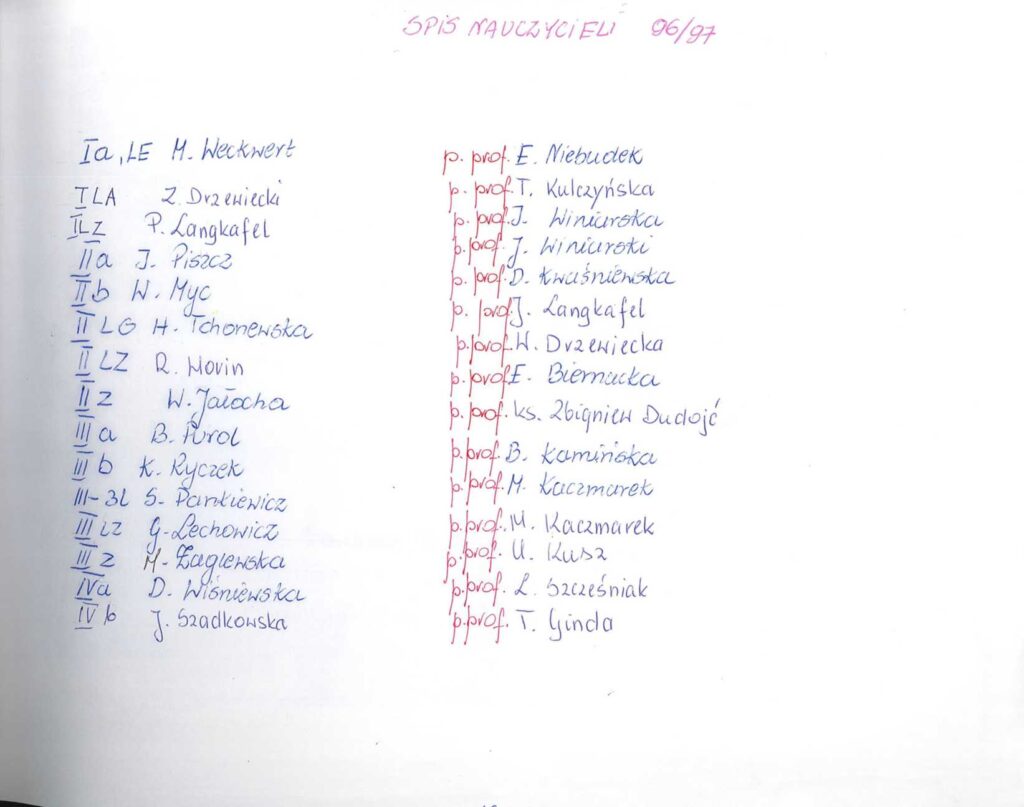 SPIS NAUCZYCIELI 96/97
Ia, LE M. Weckwert
I LA Z. Drzewiecki
I LZ P. Langkafel
II a J. Piszcz
II b W. Myc
II LG H. Tchorzewska
II LZ R. Morin
II z W. Jałocha
III a B. Purol
III b K. Ryczek
III-3L S. Pankiewicz
III LZ G. Lechowicz
III z M. Żaglewska
IVa D. Wiśniewska
IV b J. Szadkowska
p. prof. E. Niebudek
p. prof. T. Kulczyńska
p. prof. J. Winiarska
p. prof. J. Winiarski
p. prof. D. Kwaśniewska
p. prof. J. Langkafel
p. prof. W. Drzewiecka
p. prof. E. Biernacka
p. prof. ks. Zbigniew Dudojć
p. prof. B. Kamińska
p. prof. M. Kaczmarek
p. prof. M. Kaczmarek
p. prof. U. Kusz
p. prof. L. Szcześniak
p. prof. T. Ginda